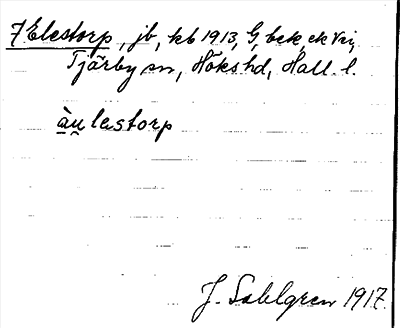 7 Elestorp, jb, kb 1913, G, bek, ek Vri,
Tjärby sn, Höks hd, Hall. l.
àu lestorp
J. Sahlgren 1917.